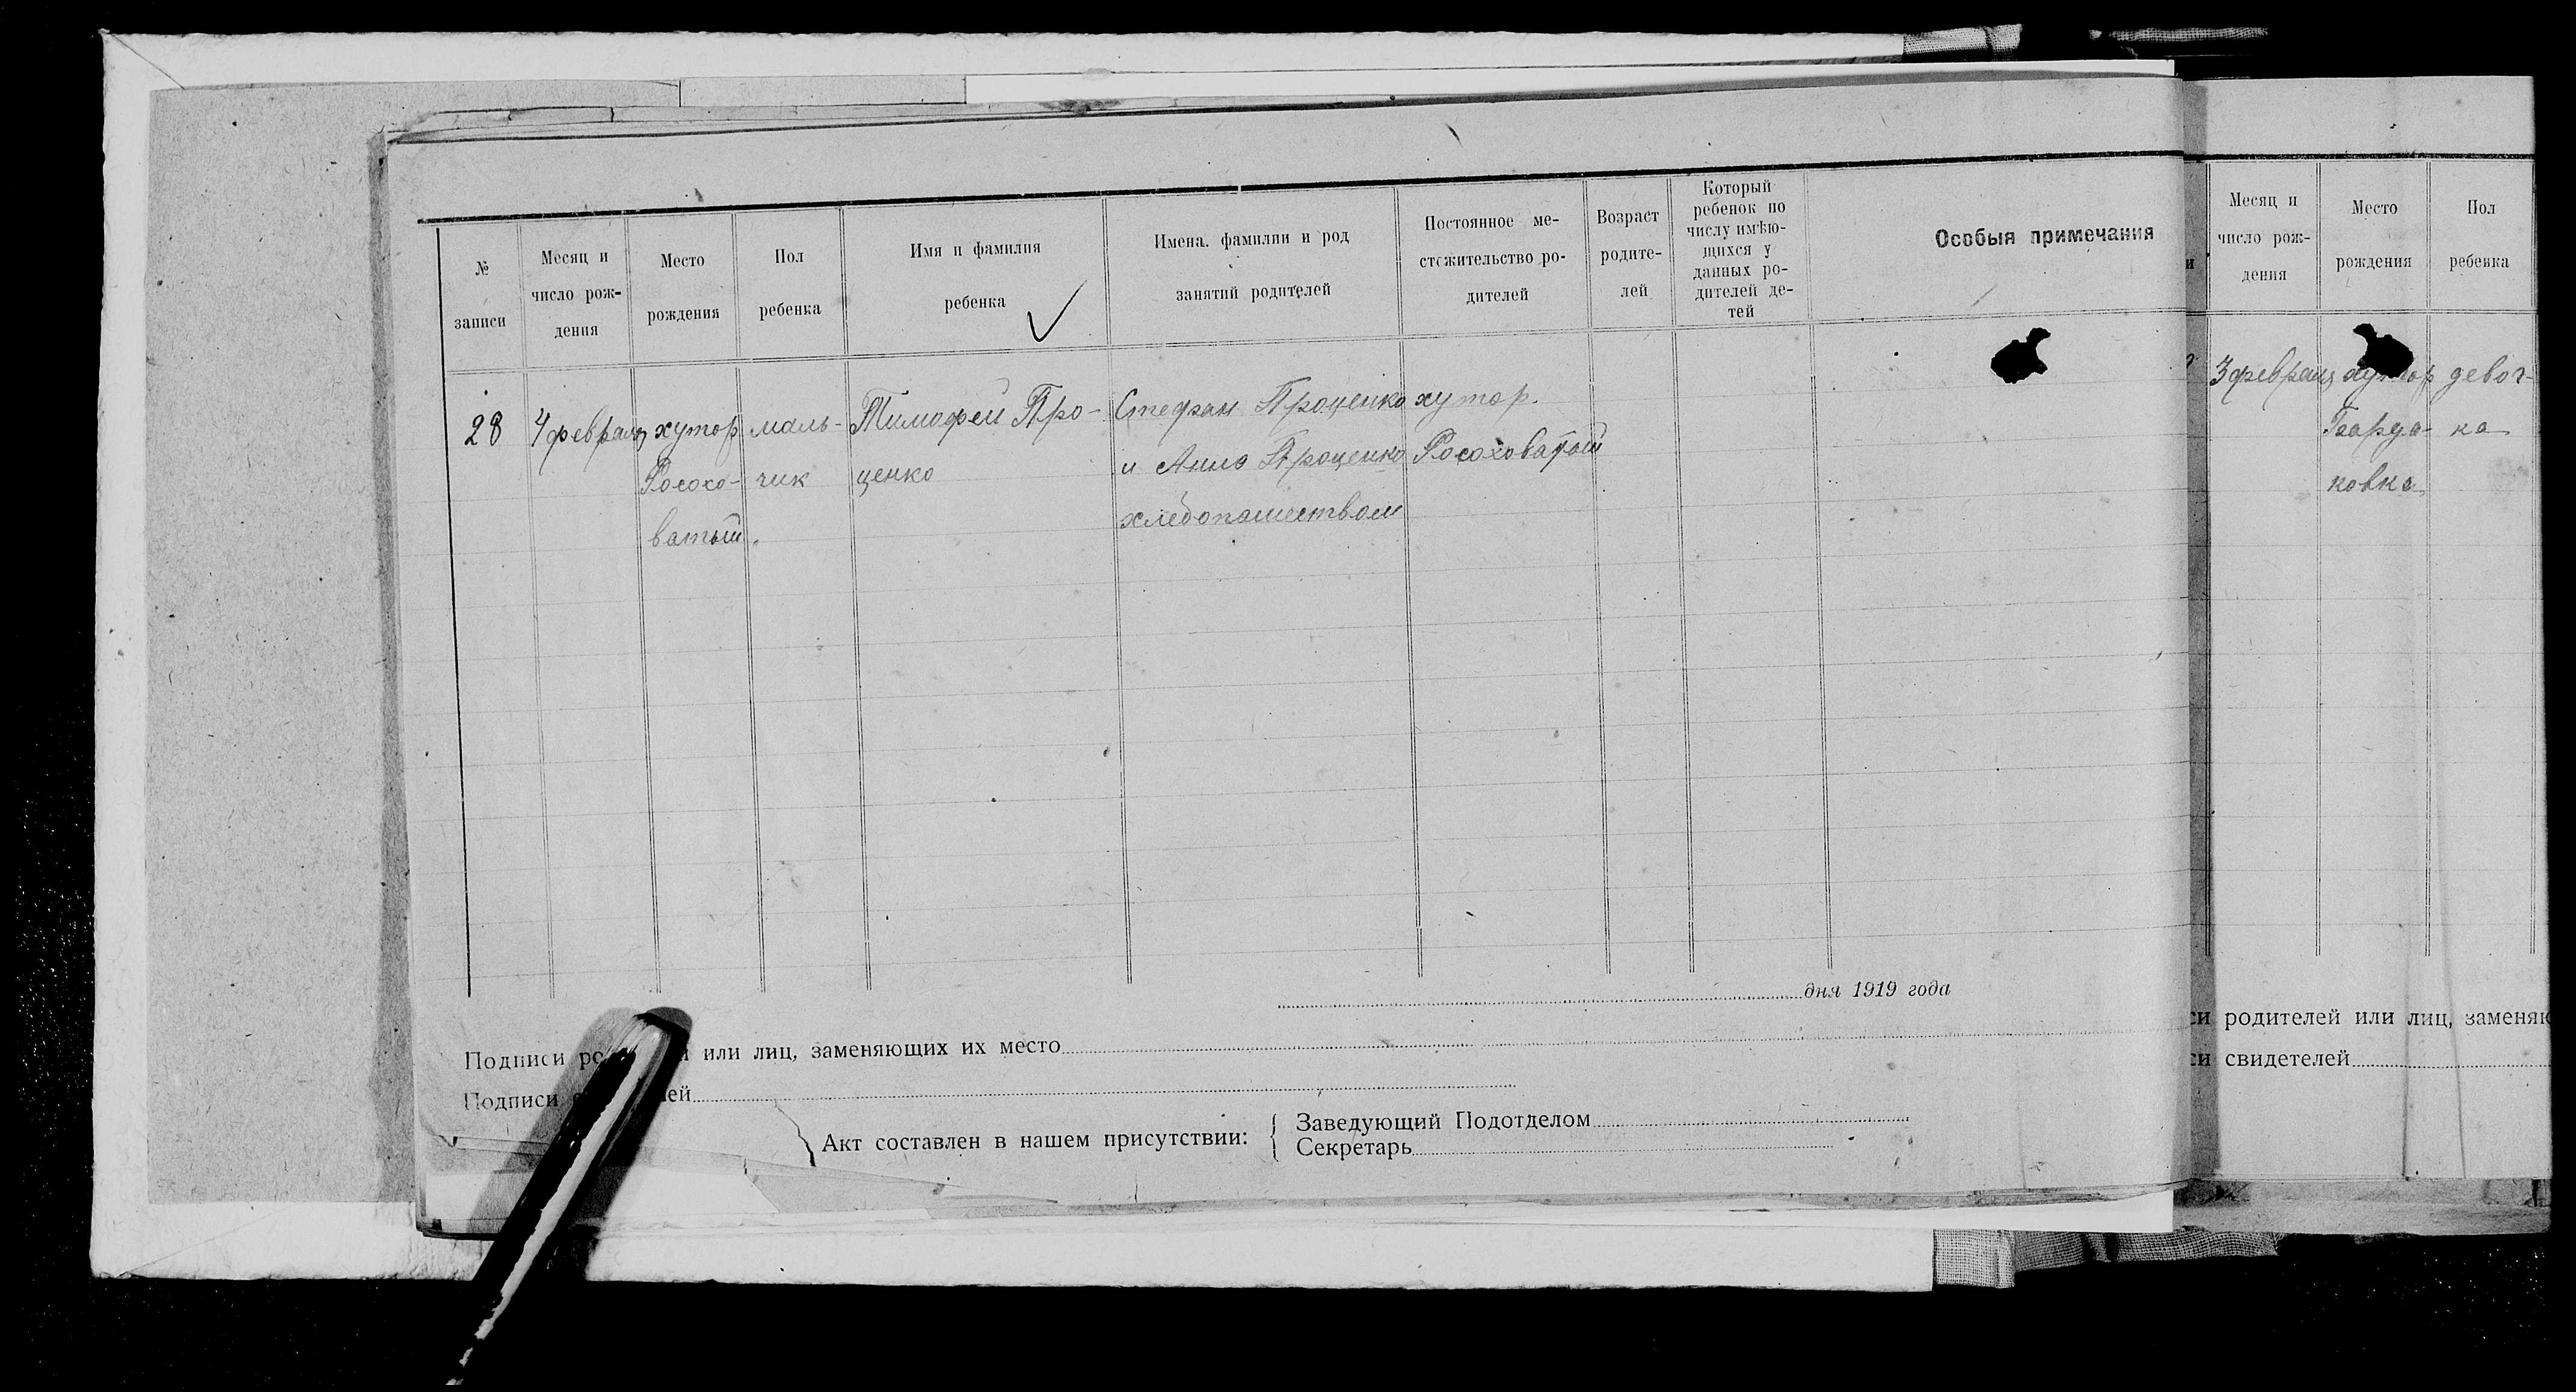 №
записи
Месяц и
число рож-
дения
Место
рождения
Пол
ребенка
Имя и фамилия
ребенка
Имена, фамилии и род
занятий родителей
Постоянное ме-
стожительство ро-
дителей
Возраст
родите-
лей
Который
ребенок по
числу имѣю-
щихся у
данных ро-
дителей де-
тей
Особыя примечания
28
4 февраля
хутор
Росохо-
ватый.
маль-
чик
Тимофей Про-
ценко
Стефан Проценко
и Анна Проценко
хлебопашеством
хутор.
Росоховатый
дня 1919 года
Подписи или лиц, заменяющих их место
Подписи
Акт составлен в нашем присутствии:
Заведующий Подотделом
Секретарь
Месяц и
число рож-
дения
Место
рождения
Пол
ребенка
3 февраля
хутор
ковка
девоч-
ка
родителей или лиц, заменяю
свидетелей